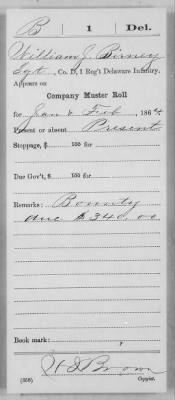 B 1 Del.
William J. Birney
Sgt, Co. D, 1 Reg't Delaware Infantry.
Appears on
Company Muster Roll
for Jan & Feb, 1864.
Present or absent Present
Stoppage, $ 100 for
Due Gov't, $ 100 for
Remarks: Bounty
due $340.00
Book mark:
Brown
(358) Copyist.